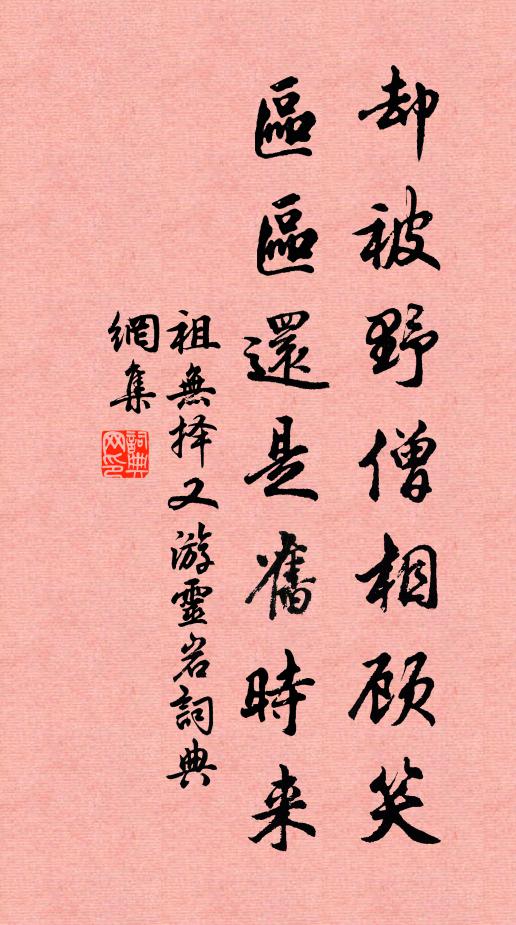 却被野僧相顾笑
區區還是舊時来
祖無择又游靈岩詞典
網集
詞典網印